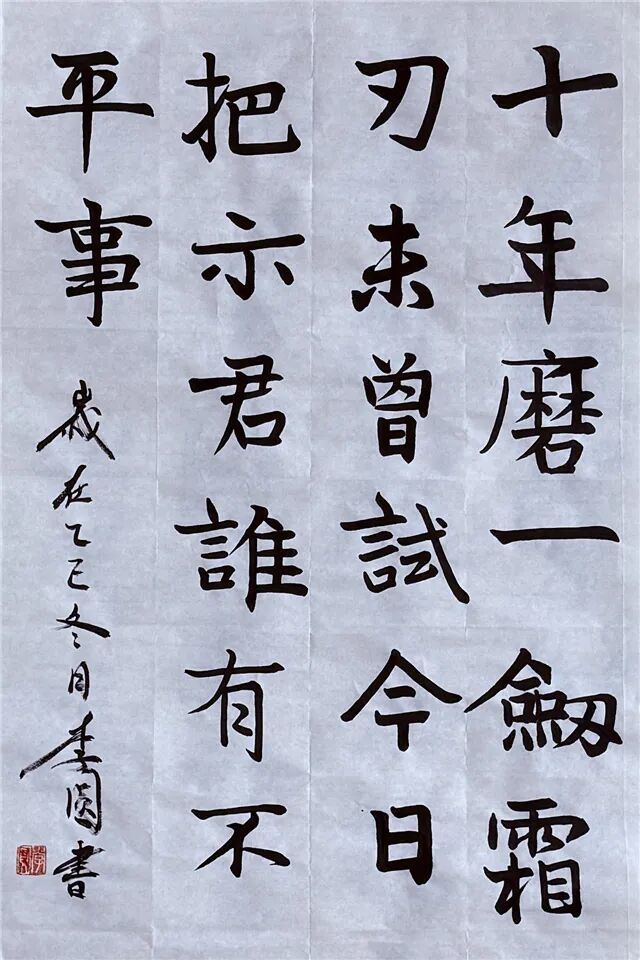 十年磨一劔霜
刃未曾試今日
把示君誰有不
平事
歲在乙巳冬月書